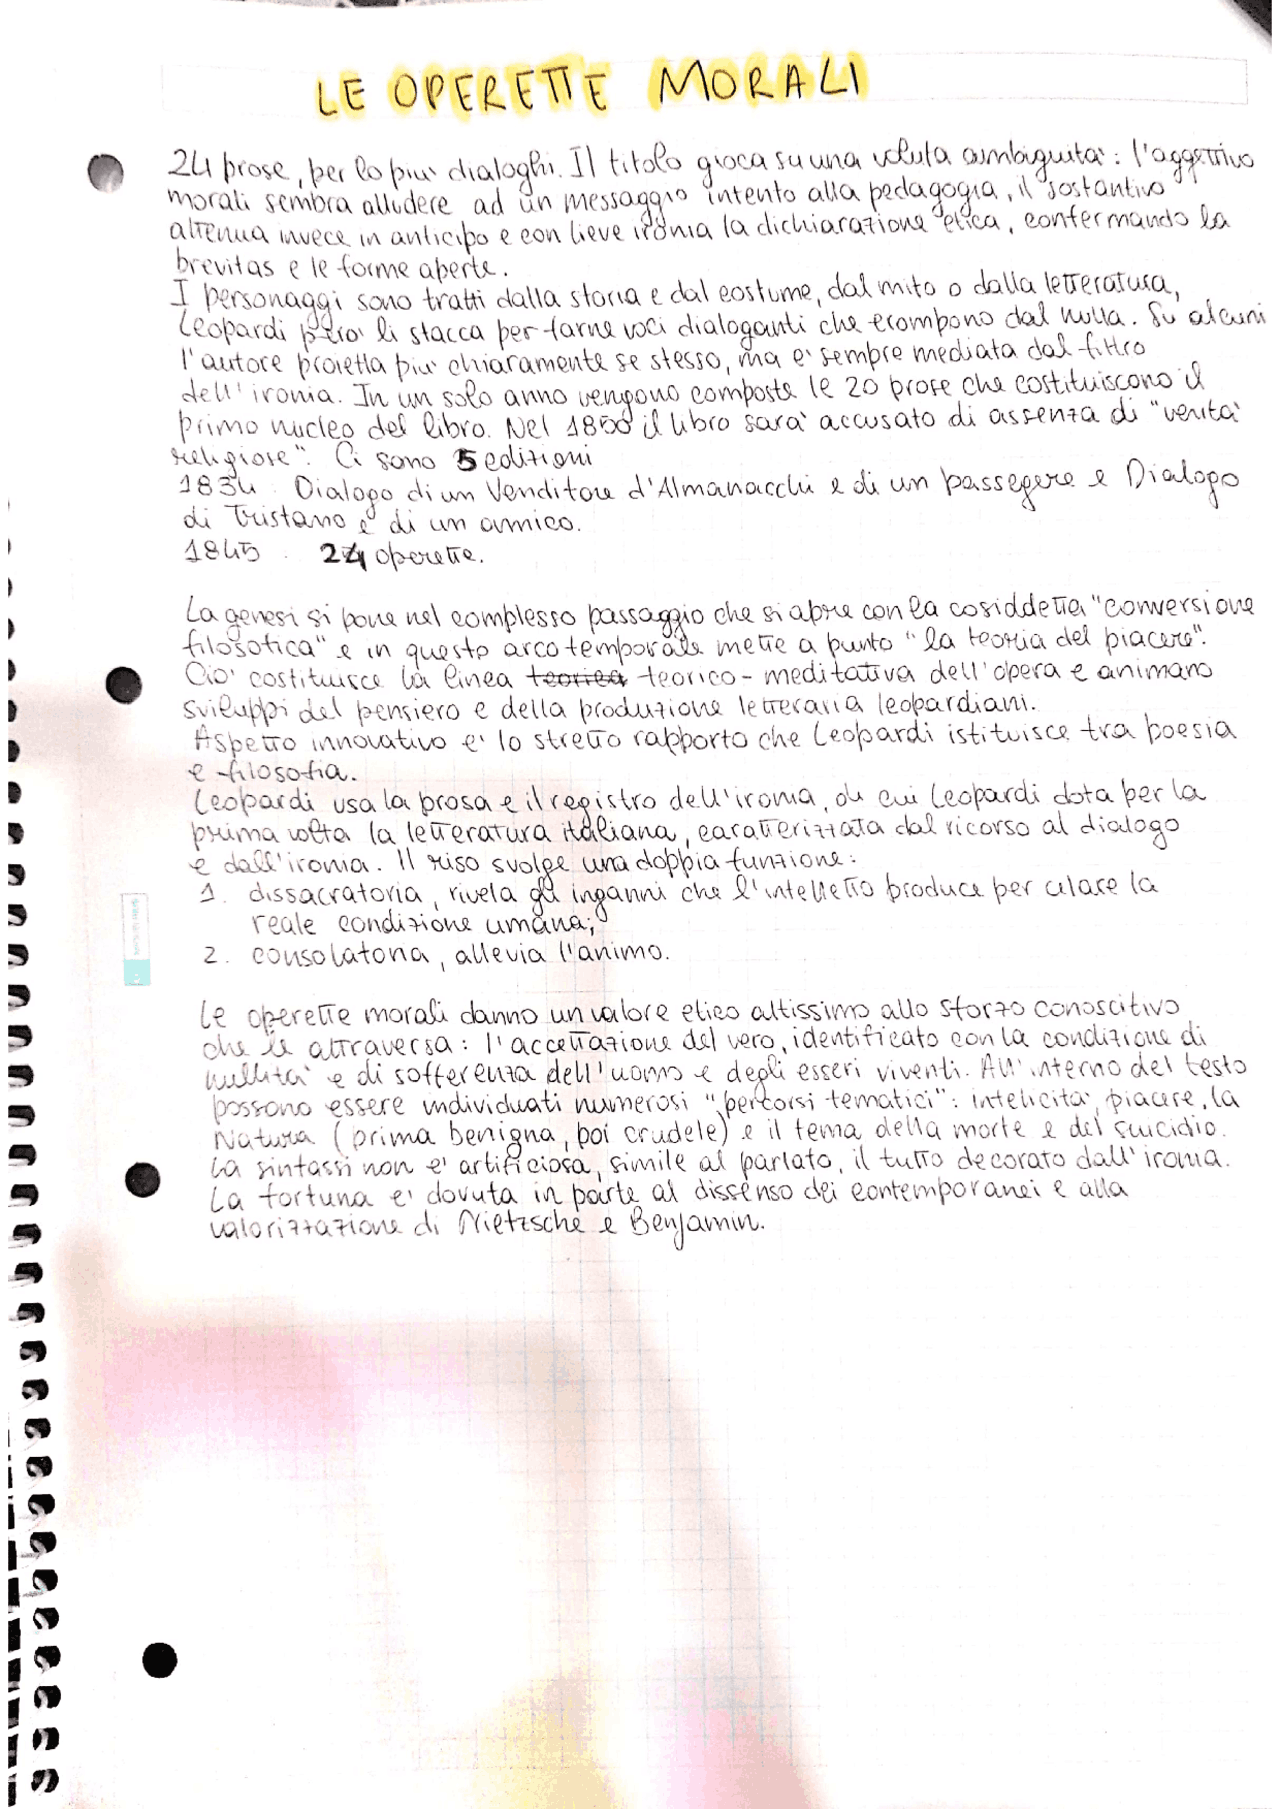 LE OPERETTE MORALI
24 prose, per lo piu' dialoghi. Il titolo gioca su una voluta ambiguita': l'aggettivo
morali sembra alludere ad un messaggio intento alla pedagogia, il sostantivo
attenua invece in anticipo e con lieve ironia la dichiarazione etica, confermando la
brevitas e le forme aperte.
I personaggi sono tratti dalla storia e dal costume, dal mito o dalla letteratura,
Leopardi pero' li stacca per farne voci dialoganti che erompono dal nulla. Su alcuni
l'autore proietta piu' chiaramente se stesso, ma e' sempre mediata dal filtro
dell'ironia. In un solo anno vengono composte le 20 prose che costituiscono il
primo nucleo del libro. Nel 1850 il libro sara' accusato di assenza di "verita'
religiose". Ci sono 5 edizioni
1834 : Dialogo di un Venditore d'Almanacchi e di un passegere e Dialogo
di Tristano e di un amico.
1845 : 24 operette.
La genesi si pone nel complesso passaggio che si apre con la cosiddetta "conversione
filosofica" e in questo arco temporale mette a punto "la teoria del piacere".
Cio' costituisce la linea teorica teorico-meditativa dell'opera e animano
sviluppi del pensiero e della produzione letteraria leopardiani.
Aspetto innovativo e' lo stretto rapporto che Leopardi istituisce tra poesia
e filosofia.
Leopardi usa la prosa e il registro dell'ironia, di cui Leopardi dota per la
prima volta la letteratura italiana, caratterizzata dal ricorso al dialogo
e dall'ironia. Il riso svolge una doppia funzione:
1. dissacratoria, rivela gli inganni che l'intelletto produce per celare la
reale condizione umana;
2. consolatoria, allevia l'animo.
Le operette morali danno un valore etico altissimo allo sforzo conoscitivo
che le attraversa: l'accettazione del vero, identificato con la condizione di
nullita' e di sofferenza dell'uomo e degli esseri viventi. All'interno del testo
possono essere individuati numerosi "percorsi tematici": infelicita', piacere, la
Natura (prima benigna, poi crudele) e il tema della morte e del suicidio.
La sintassi non e' artificiosa, simile al parlato, il tutto decorato dall'ironia.
La fortuna e' dovuta in parte al dissenso dei contemporanei e alla
valorizzazione di Nietzsche e Benjamin.